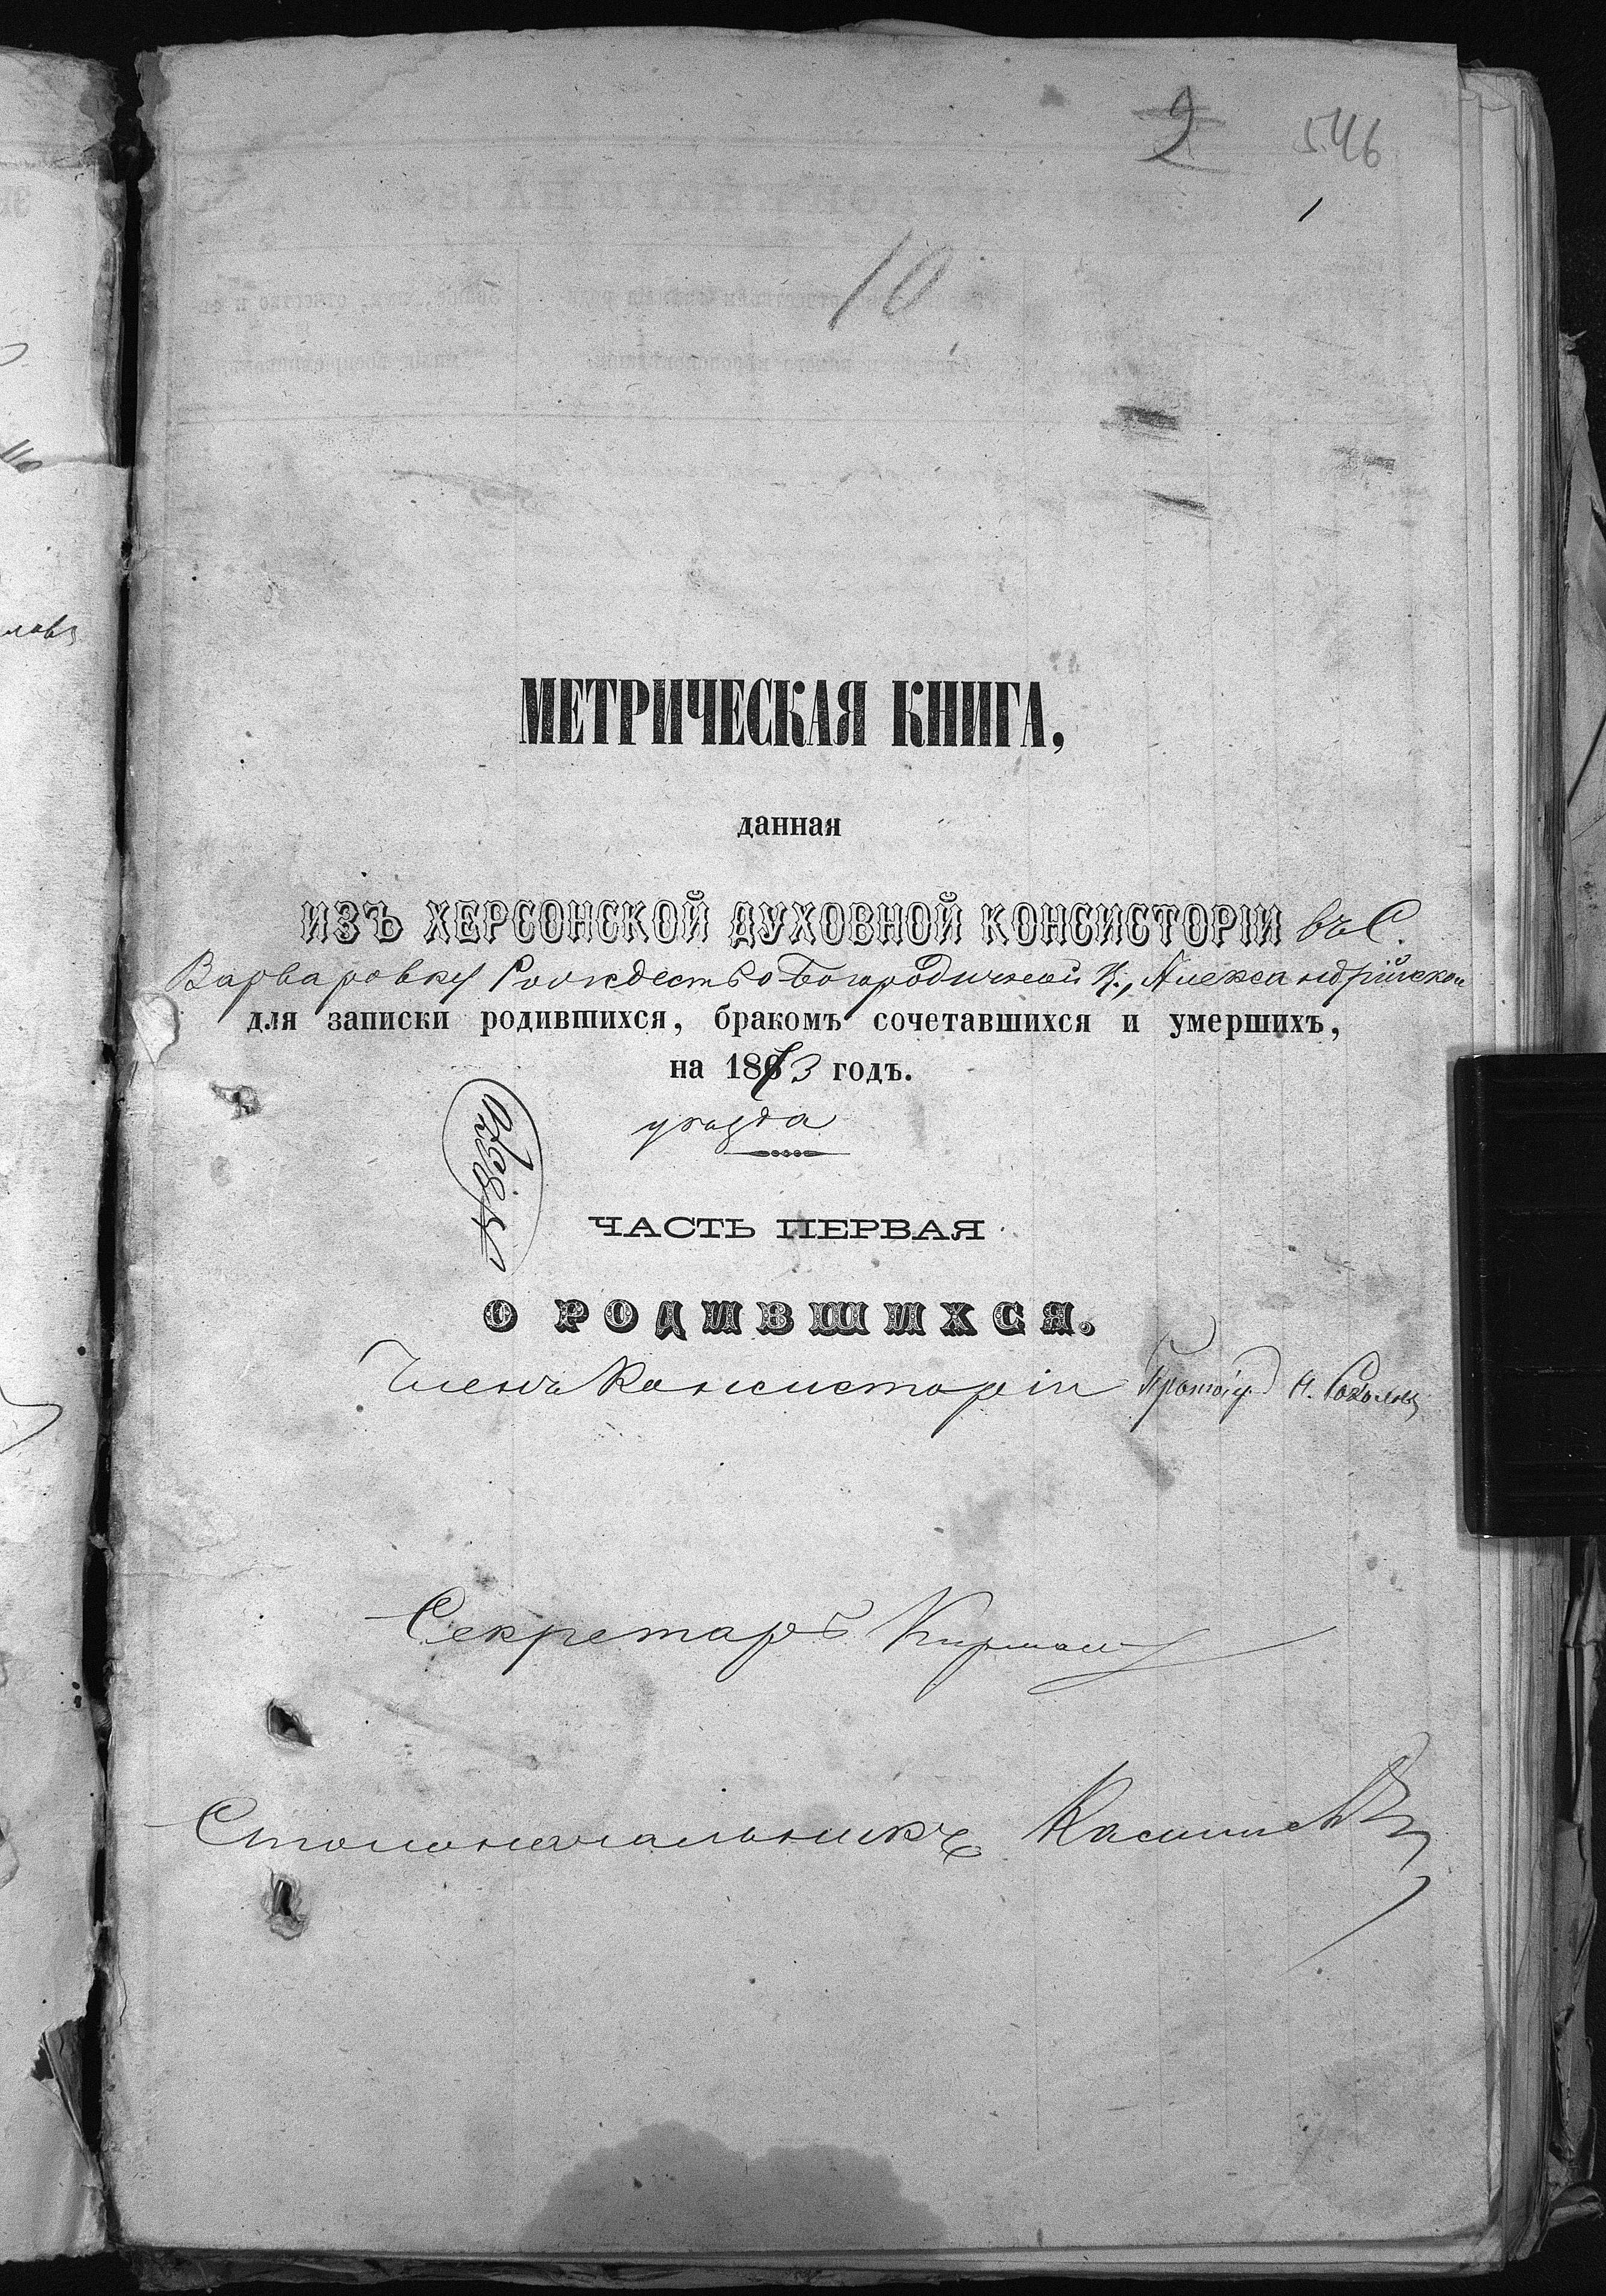 2 546
1
10
МЕТРИЧЕСКАЯ КНИГА,
данная
ИЗЪ ХЕРСОНСКОЙ ДУХОВНОЙ КОНСИСТОРІИ въ С.
Варваровку Рождество-Богородичной Ц., Александрійскаго
для записки родившихся, бракомъ сочетавшихся и умершихъ,
на 1873 годъ.
уѣзда
ЧАСТЬ ПЕРВАЯ
О РОДИВШИХСЯ.
Членъ Консисторіи Протоіер. Н. Соколовъ
Секретарь
Столоначальникъ